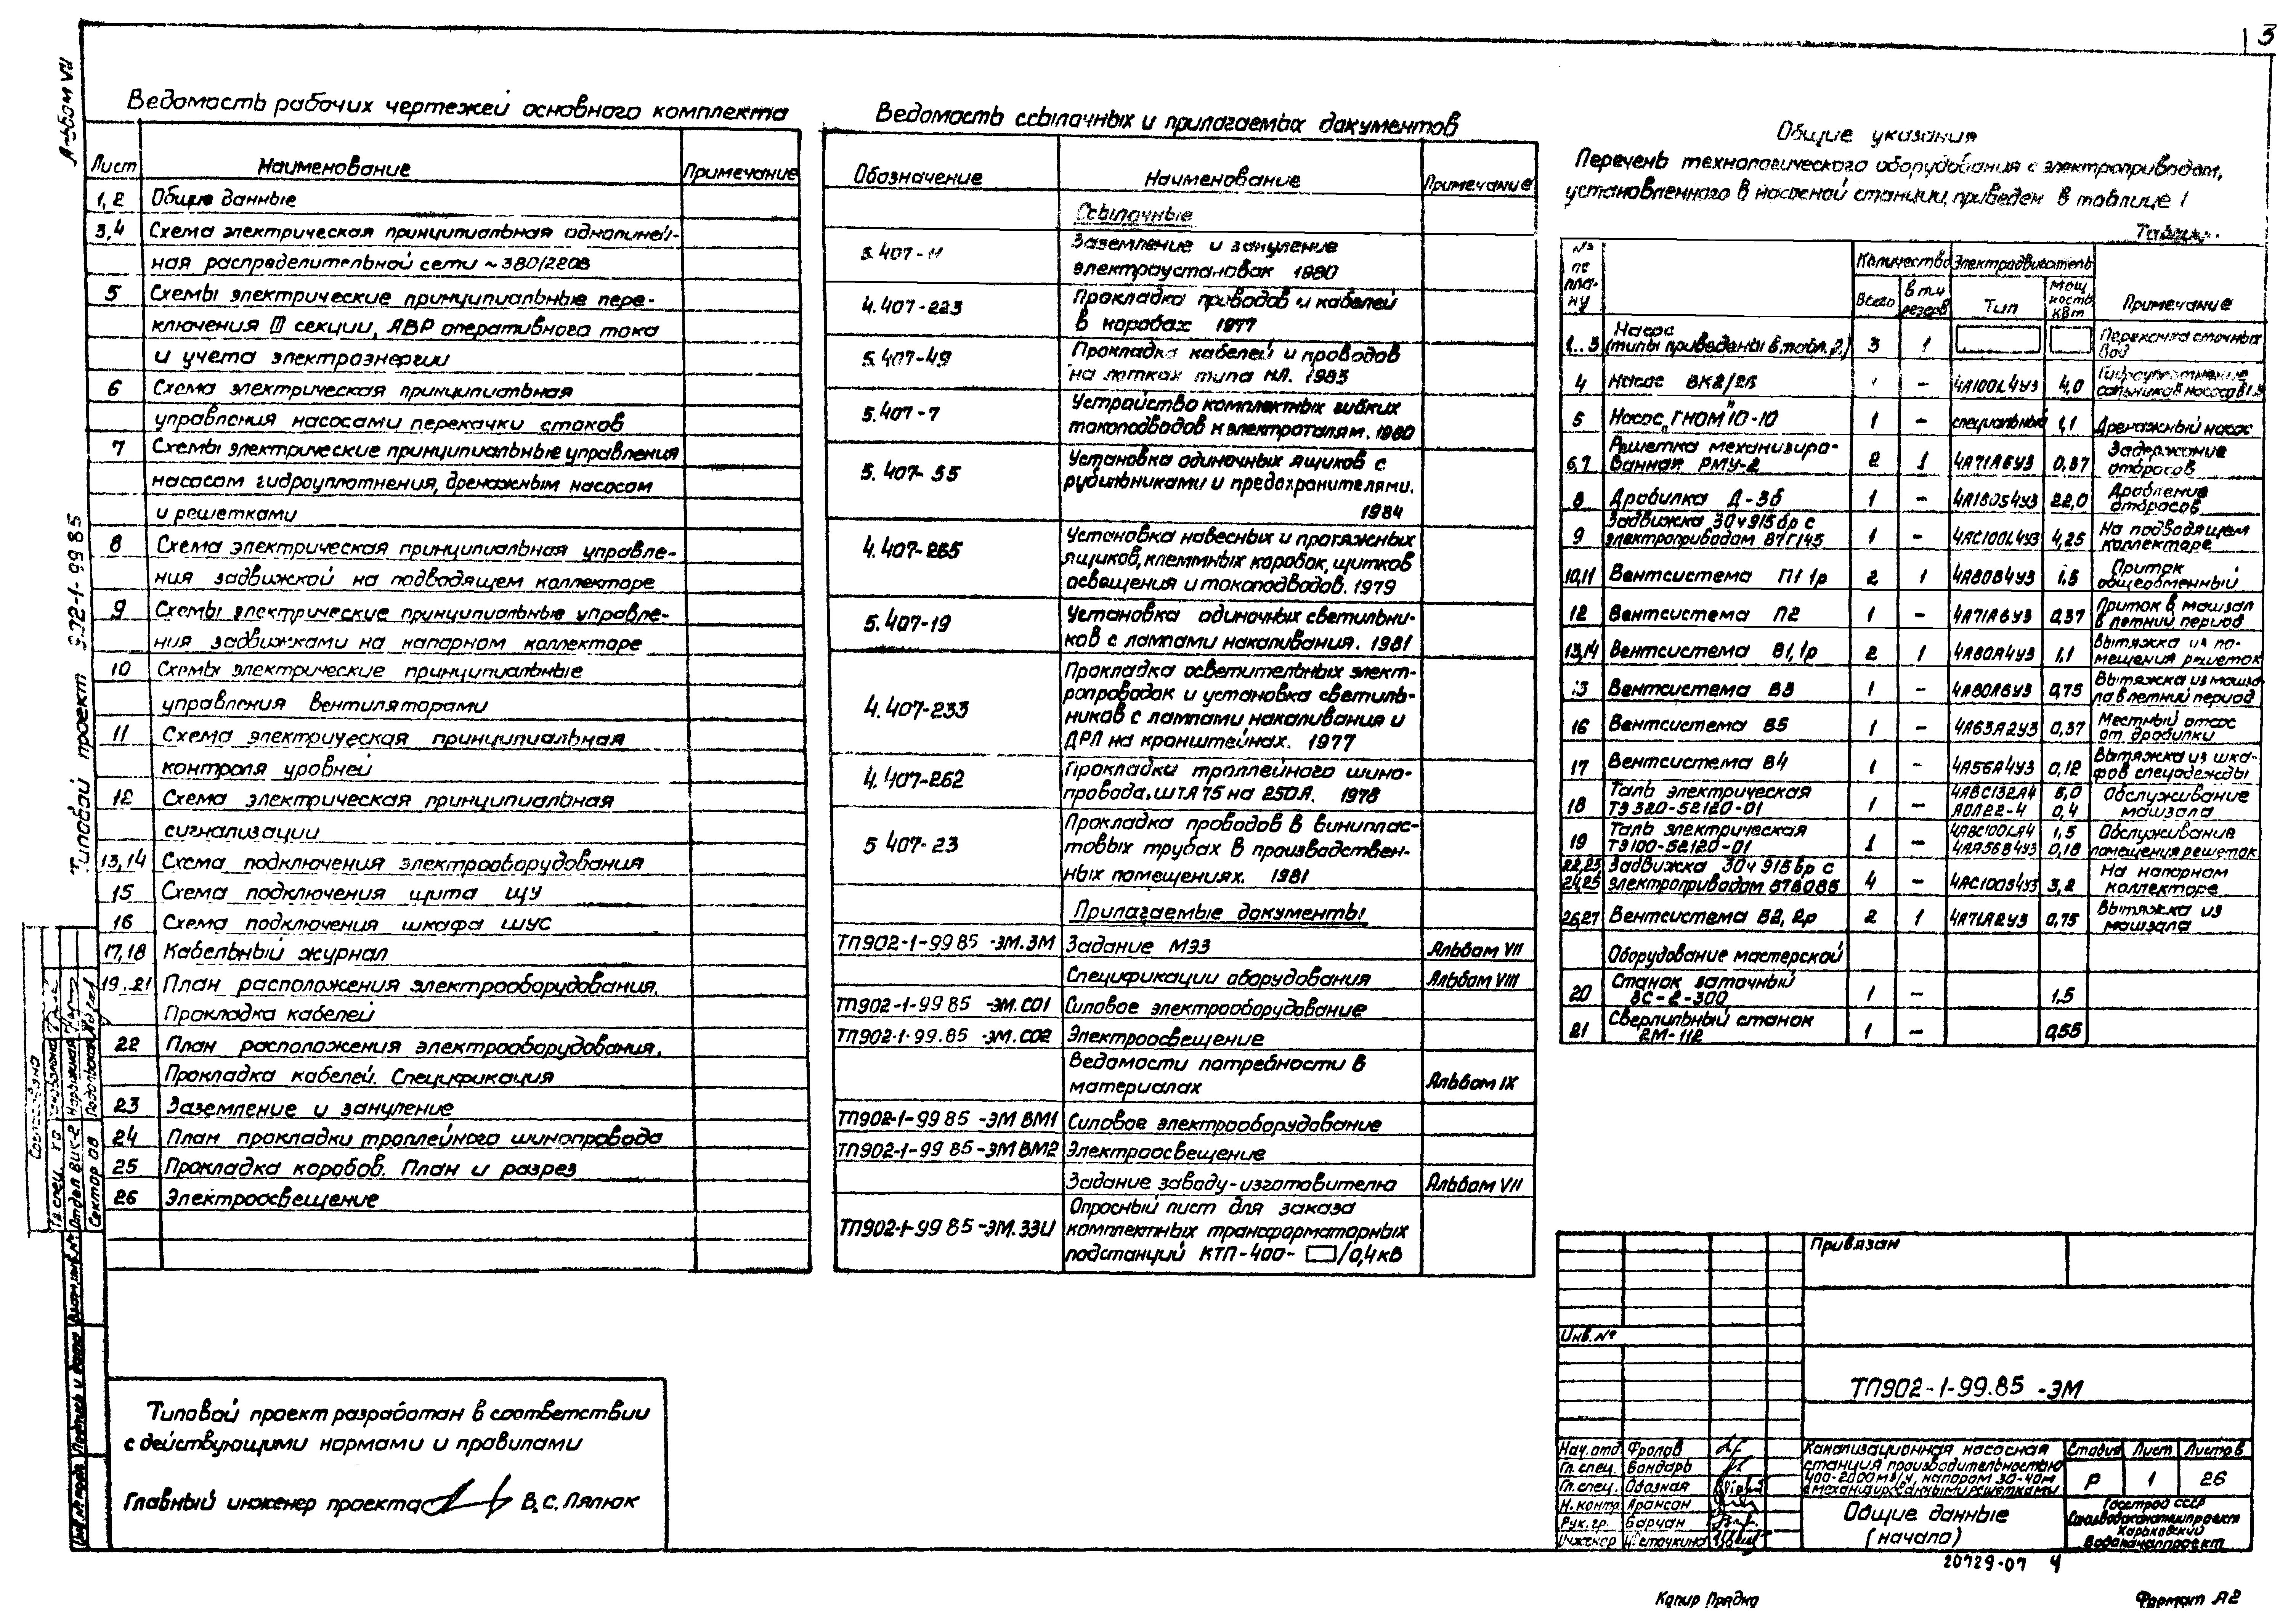 3
Альбом VII
Типовой проект 902-1-99 85
Ведомость рабочих чертежей основного комплекта
Лист Наименование Примечание
1,2 Общие данные
3,4 Схема электрическая принципиальная однолиней-
ная распределительной сети ~380/220В
5 Схемы электрические принципиальные пере-
ключения III секции, АВР оперативного тока
и учета электроэнергии
6 Схема электрическая принципиальная
управления насосами перекачки стоков
7 Схемы электрические принципиальные управления
насосом гидроуплотнения, дренажным насосом
и решетками
8 Схема электрическая принципиальная управле-
ния задвижкой на подводящем коллекторе
9 Схемы электрические принципиальные управле-
ния задвижками на напорном коллекторе
10 Схемы электрические принципиальные
управления вентиляторами
11 Схема электрическая принципиальная
контроля уровней
12 Схема электрическая принципиальная
сигнализации
13,14 Схема подключения электрооборудования
15 Схема подключения щита ЩУ
16 Схема подключения шкафа ШУС
17,18 Кабельный журнал
19..21 План расположения электрооборудования.
Прокладка кабелей
22 План расположения электрооборудования.
Прокладка кабелей. Спецификация
23 Заземление и зануление
24 План прокладки троллейного шинопровода
25 Прокладка коробов. План и разрез
26 Электроосвещение
Ведомость ссылочных и прилагаемых документов
Обозначение Наименование Примечание
Ссылочные
5.407-11 Заземление и зануление
электроустановок 1980
4.407-223 Прокладка проводов и кабелей
в коробах 1977
5.407-49 Прокладка кабелей и проводов
на лотках типа НЛ. 1983
5.407-7 Устройство комплектных гибких
токоподводов к электроталям. 1980
5.407-55 Установка одиночных ящиков с
рубильниками и предохранителями.
1984
4.407-265 Установка навесных и протяжных
ящиков, клеммных коробок, щитков
освещения и токоподводов. 1979
5.407-19 Установка одиночных светильни-
ков с лампами накаливания. 1981
4.407-233 Прокладка осветительных элект-
ропроводок и установка светиль-
ников с лампами накаливания и
ДРЛ на кронштейнах. 1977
4.407-262 Прокладка троллейного шино-
провода ШТА75 на 250А. 1978
5 407-23 Прокладка проводов в винипlас-
товых трубах в производствен-
ных помещениях. 1981
Прилагаемые документы
ТП902-1-99 85 -ЭМ.ЗМ Задание МЭЗ Альбом VII
Спецификации оборудования Альбом VIII
ТП902-1-99 85 -ЭМ.СО1 Силовое электрооборудование
ТП902-1-99.85 -ЭМ.СО2 Электроосвещение
Ведомости потребности в
материалах Альбом IX
ТП902-1-99 85 -ЭМ ВМ1 Силовое электрооборудование
ТП902-1-99 85 -ЭМ ВМ2 Электроосвещение
Задание заводу-изготовителю Альбом VII
ТП902-1-99 85 -ЭМ.ЗЗИ Опросный лист для заказа
комплектных трансформаторных
подстанций КТП-400- /0,4кВ
Общие указания
Перечень технологического оборудования с электроприводом,
установленного в насосной станции, приведен в таблице 1
№ по плану Количество Электродвигатель Примечание
Всего в т.ч резерв Тип мощность кВт
1..3 Насос (типы приведены в табл. 2) 3 1 Перекачка сточных вод
4 Насос ВК2/26 - 4А100L4У3 4,0 Гидроуплотнение сальников насосов 1..3
5 Насос „ГНОМ" 10-10 1 - специальный 1,1 Дренажный насос
6,7 Решетка механизированная РМУ-2 2 1 4А71А6У3 0,37 Задержание отбросов
8 Дробилка Д-3б 1 - 4А180S4У3 22,0 Дробление отбросов
9 Задвижка 30ч915бр с электроприводом 87Г145 1 - 4АС100L4У3 4,25 На подводящем коллекторе
10,11 Вентсистема П1 1р 2 1 4А80В4У3 1,5 Приток общеобменный
12 Вентсистема П2 1 - 4А71А6У3 0,37 Приток в машзал в летний период
13,14 Вентсистема В1,1р 2 1 4А80А4У3 1,1 Вытяжка из помещения решеток
15 Вентсистема В3 1 - 4А80А6У3 0,75 Вытяжка из машзала в летний период
16 Вентсистема В5 1 - 4А63А2У3 0,37 Местный отсос от дробилки
17 Вентсистема В4 1 - 4А56А4У3 0,12 Вытяжка из шкафов спецодежды
18 Таль электрическая ТЭ 320-52120-01 1 - 4АВС132А4 5,0 АОЛ22-4 0,4 Обслуживание машзала
19 Таль электрическая ТЭ100-52120-01 1 - 4АВС100LА4 1,5 4АА56В4У3 0,18 Обслуживание помещения решеток
22,23 24,25 Задвижка 30ч 915бр с электроприводом 87В085 4 - 4АС100S4У3 3,2 На напорном коллекторе
26,27 Вентсистема В2, 2р 2 1 4А71А2У3 0,75 Вытяжка из машзала
Оборудование мастерской
20 Станок заточный ЗС-2-300 1 - 1,5
21 Сверлильный станок 2М-112 1 - 0,55
Типовой проект разработан в соответствии
с действующими нормами и правилами
Главный инженер проекта В.С. Ляпюк
Привязан
Инв.№
ТП902-1-99.85 -ЭМ
Нач.отд Фролов
Гл.спец. Бондарь
Гл.спец.
Н.контр. Аронсон
Рук.гр. Барчан
Инженер
Канализационная насосная
станция производительностью
400-2000м3/ч, напором 30-40м
с механизированными решетками
Стадия Лист Листов
Р 1 26
Общие данные
(начало)
Госстрой СССР
Союзводоканалниипроект
Харьковский
Водоканалпроект
20729-07 4
Копир Прядко
Формат А2